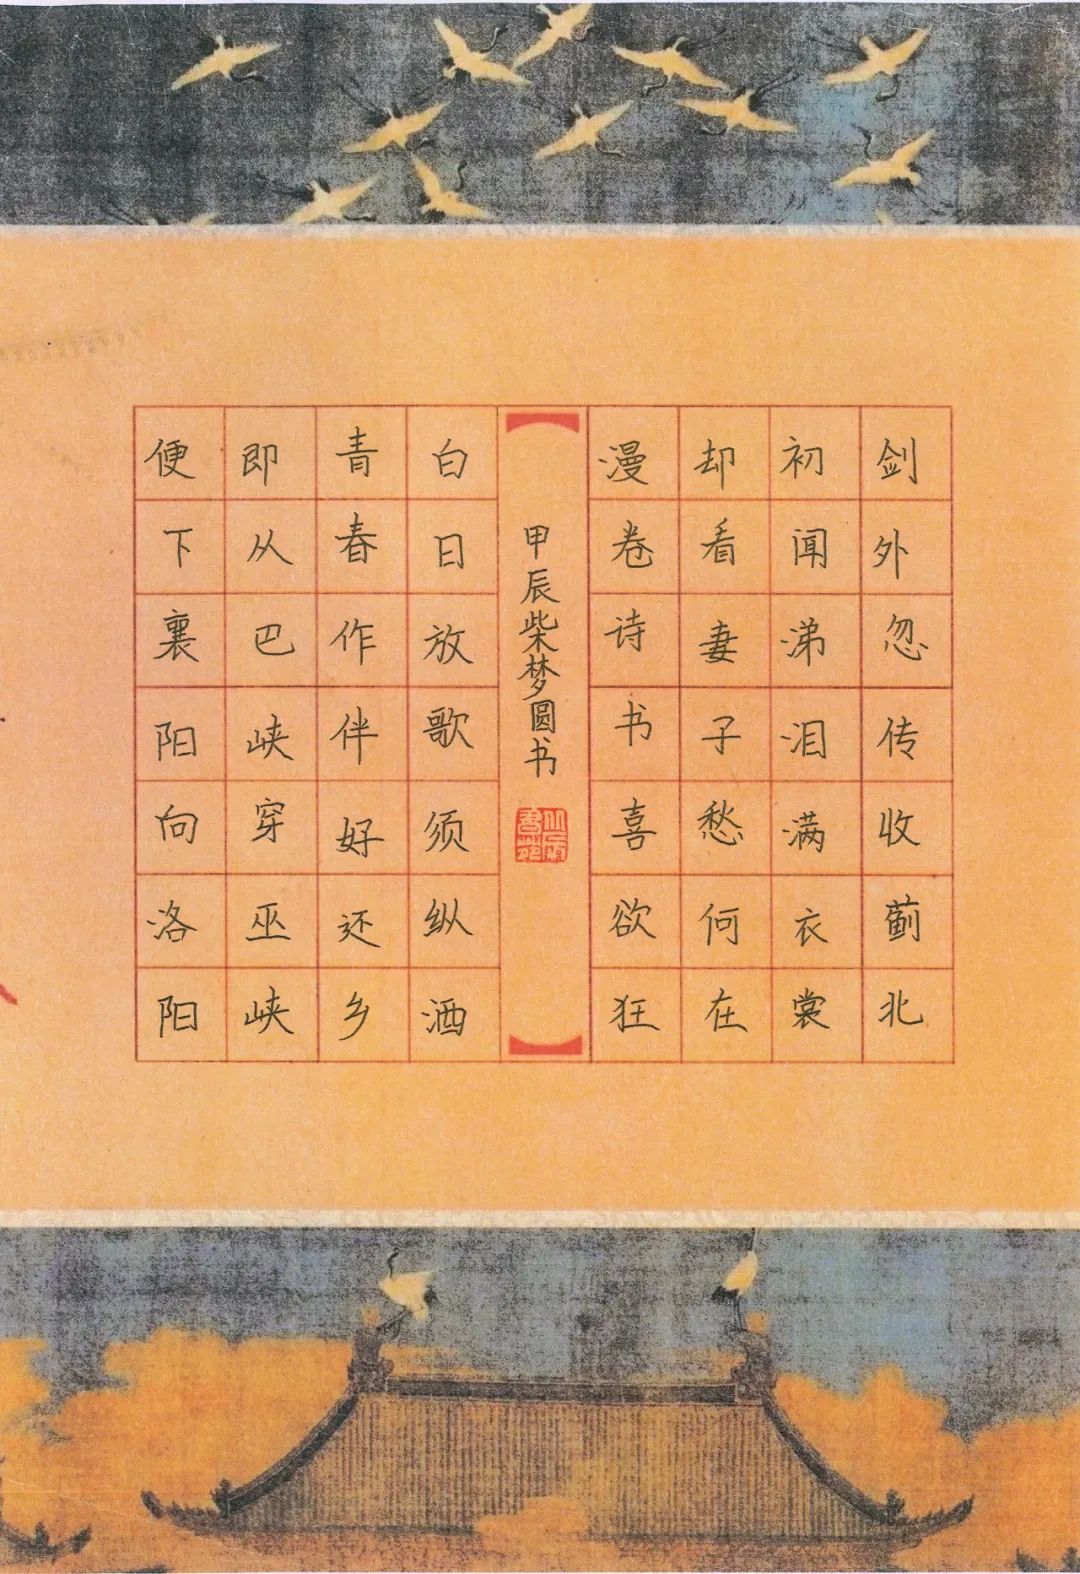 剑外忽传收蓟北
初闻涕泪满衣裳
却看妻子愁何在
漫卷诗书喜欲狂
甲辰柴梦圆书
白日放歌须纵酒
青春作伴好还乡
即从巴峡穿巫峡
便下襄阳向洛阳